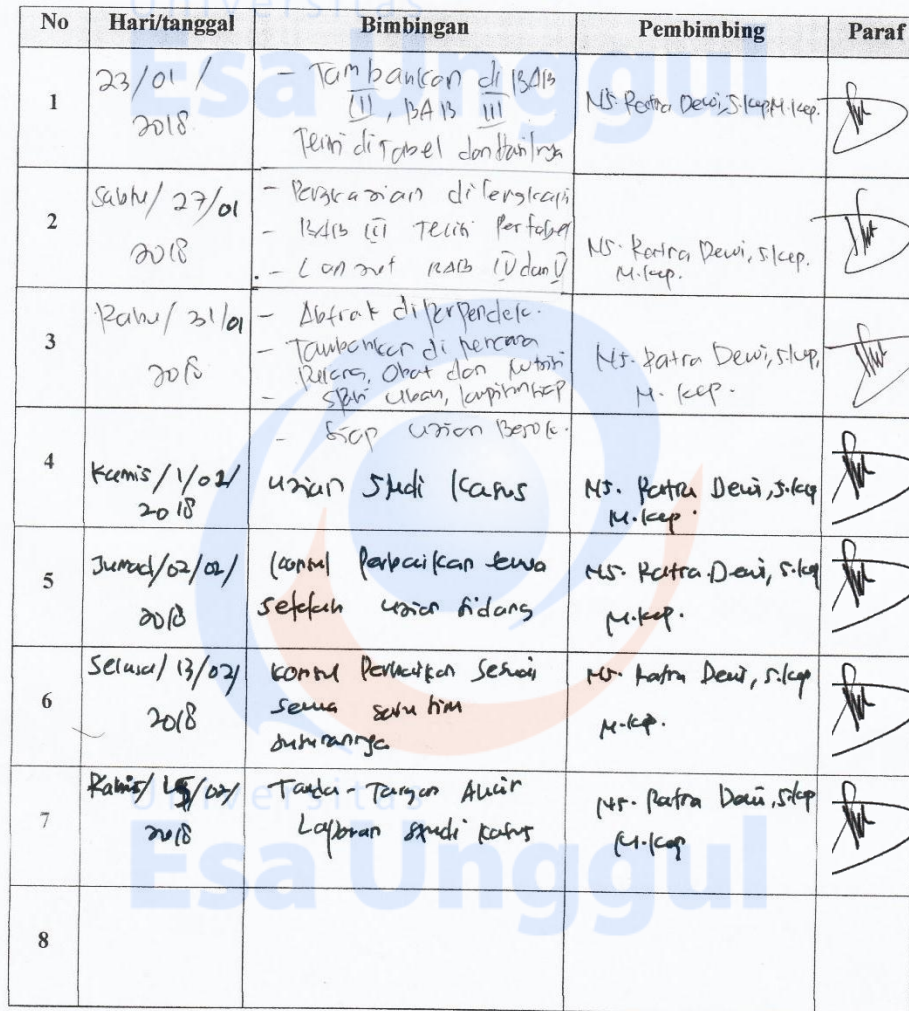 Universitas
Esa Unggul
No Hari/tanggal Bimbingan Pembimbing Paraf
1
23/01/
2018
- Tambahkan di BAB
III, BAB III
Teliti di Tabel dan
Ns. Ratra Dewi, S.kep, M.kep.
2
Sabtu/ 27/01
2018
- Pengkajian dilengkapi
- BAB III Teliti Pertabel
- Lanjut BAB IV dan V
Ns. Ratra Dewi, S.kep.
M.kep.
3
Rabu/ 31/01
2018
- Abtrak diperpendek.
- Tambahkan di rencana
Pulang, Obat dan Nutrisi
-
- Siap Ujian Besok.
Ns. Ratra Dewi, S.kep,
M. kep.
4
Kamis/1/02/
2018
Ujian Studi Kasus
Ns. Ratra Dewi, S.kep
M.kep.
5
Jumad/02/02/
2018
Konsul Perbaikan
Setelah Ujian Sidang
Ns. Ratra Dewi, S.kep
M.kep.
6
Selasa/ 13/02/
2018
Konsul Perbaikan Sesuai
Ns. Ratra Dewi, S.kep
M.kep.
7
Kamis/ 15/02/
2018
Tanda-Tangan Akhir
Laporan Studi Kasus
Ns. Ratra Dewi, S.kep
M.kep
8
Universitas
Esa Unggul